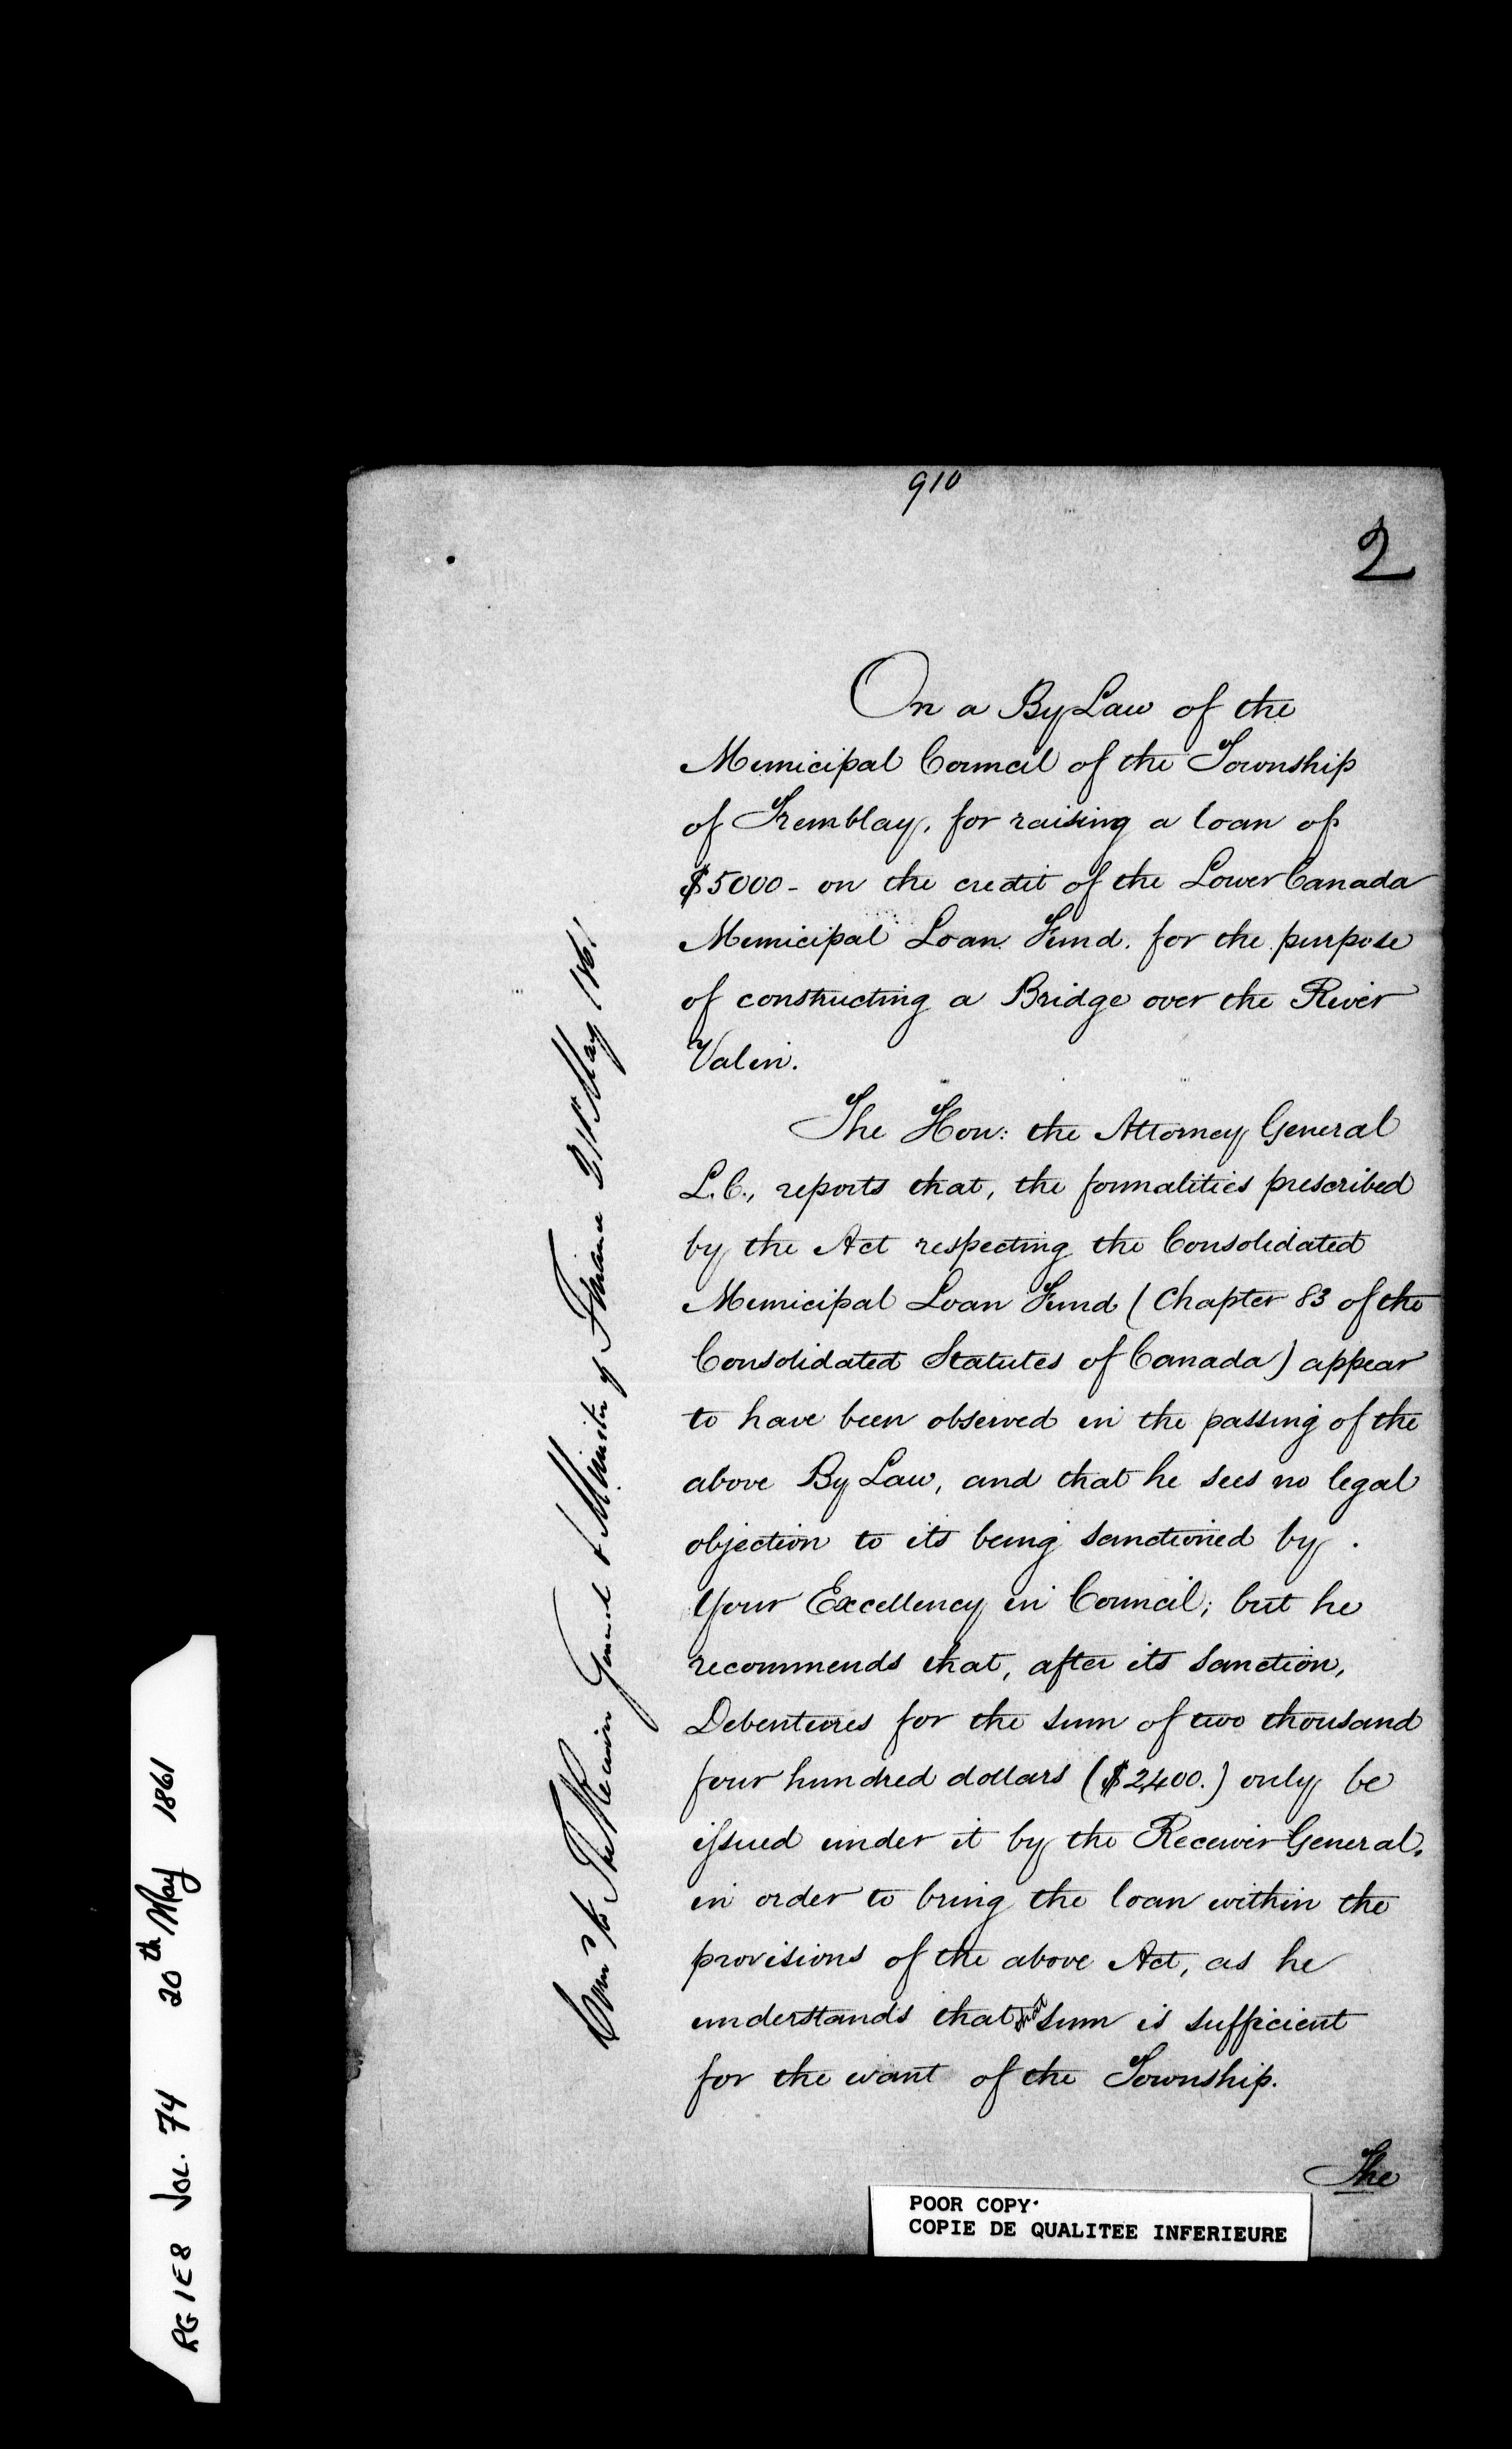 910
2
On a By Law of the
Municipal Council of the Township
of Tremblay, for raising a loan of
$5000 - on the credit of the Lower Canada
Municipal Loan Fund. for the purpose
of constructing a Bridge over the River
Valin.
The Hon: the Attorney General
L.C., reports that, the formalities prescribed
by the Act respecting the Consolidated
Municipal Loan Fund (Chapter 83 of the
Consolidated Statutes of Canada) appear
to have been observed in the passing of the
above By Law, and that he sees no legal
objection to its being sanctioned by
Your Excellency in Council; but he
recommends that, after its sanction,
Debentures for the sum of two thousand
four hundred dollars ($2400.) only be
issued under it by the Receiver General,
in order to bring the loan within the
provisions of the above Act, as he
understands that sum is sufficient
for the want of the Township.
The
The Receiver General & Minister of Finance 21st May 1861
RG 1 E 8 VOL. 74 20th May 1861
POOR COPY
COPIE DE QUALITEE INFERIEURE